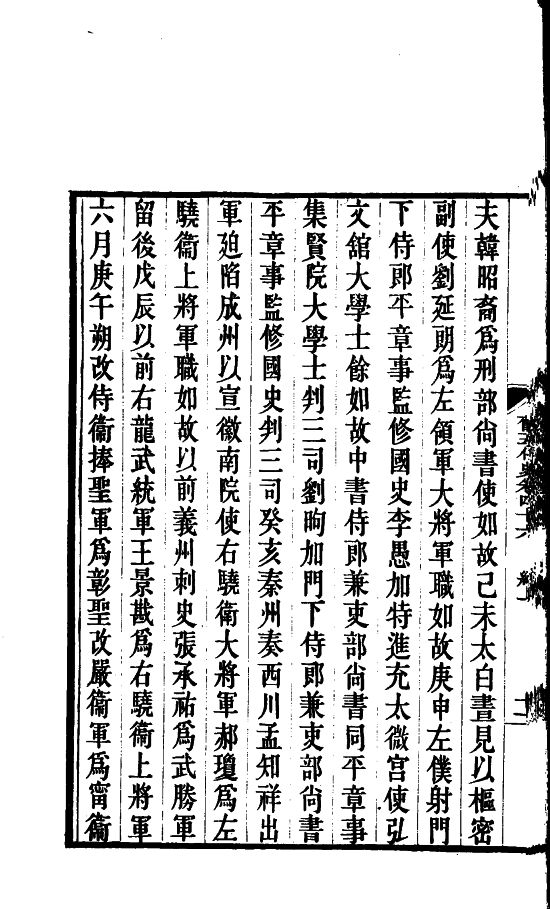 夫韓昭裔爲刑部尚書使如故己未太白晝見以樞密
副使劉延朗爲左領軍大將軍職如故庚申左僕射門
下侍郎平章事監修國史李愚加特進充太微宮使弘
文舘大學士餘如故中書侍郎兼吏部尚書同平章事
集賢院大學士判三司劉昫加門下侍郎兼吏部尚書
平章事監修國史判三司癸亥秦州奏西川孟知祥出
軍廹陷成州以宣徽南院使右驍衞大將軍郝瓊爲左
驍衞上將軍職如故以前義州刺史張承祐爲武勝軍
留後戊辰以前右龍武統軍王景戡爲右驍衞上將軍
六月庚午朔改侍衞捧聖軍爲彰聖改嚴衞軍爲甯衞